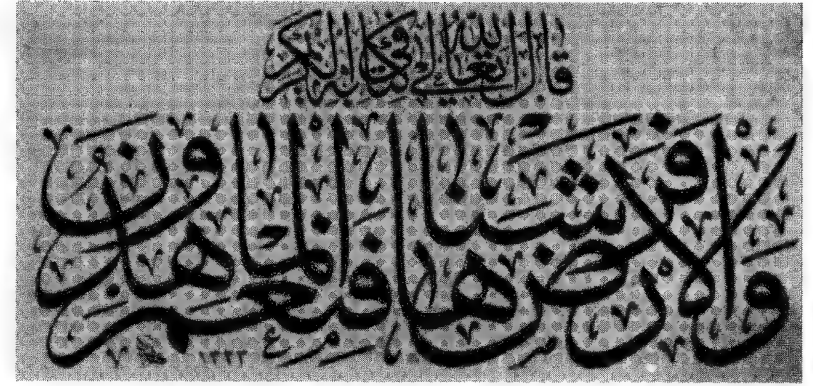 قال الله تعالى في كتابه الكريم
والأرض فرشناها فنعم الماهدون
١٣٢٢